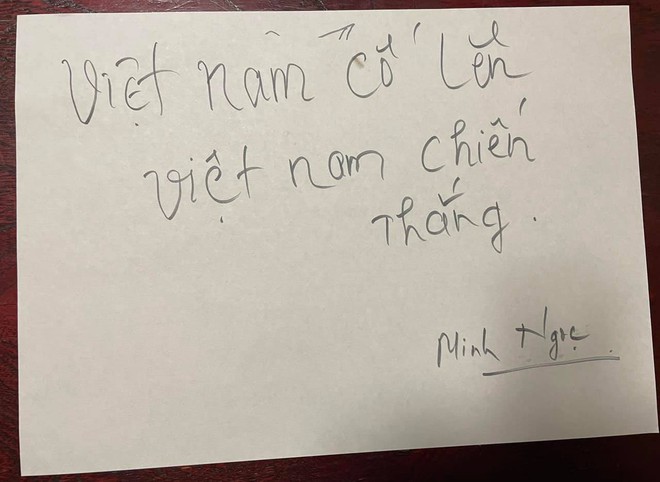 Việt nam cố lên
việt nam chiến
thắng.
Minh Ngọc